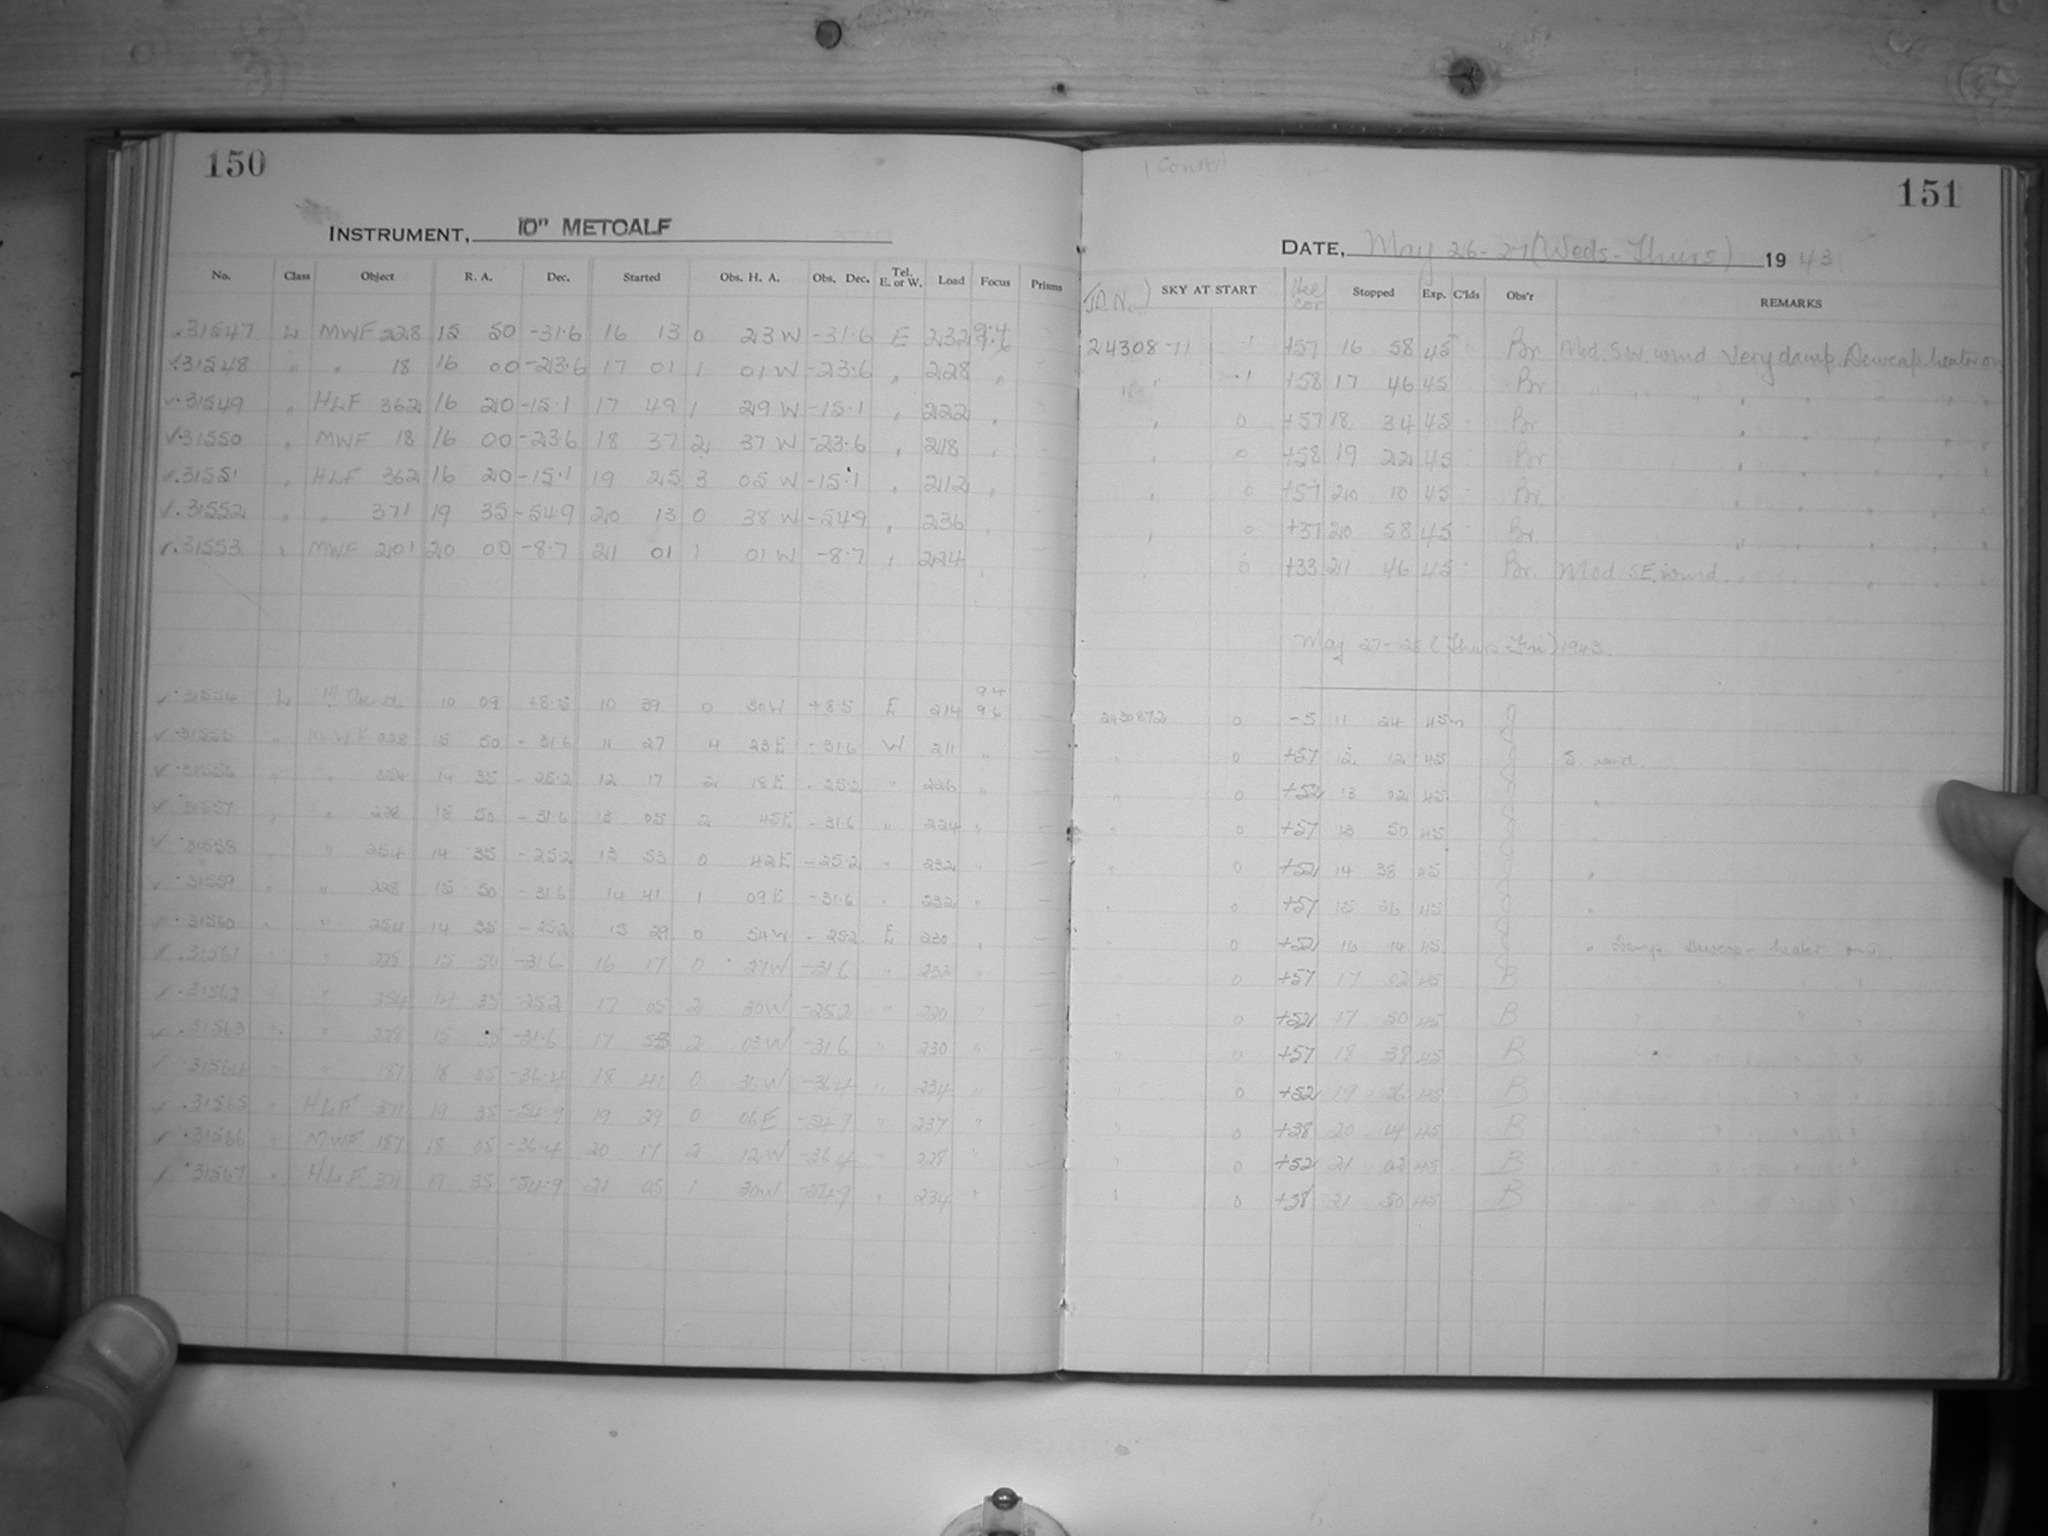 150
INSTRUMENT, 10" METCALF
No. Class Object R. A. Dec. Started Obs. H. A. Obs. Dec. Tel. E. or W. Load Focus Prisms
31547 L MWF 228 15 50 -31.6 16 13 0 23 W -31.6 E 232 9.4
31548 " " 18 16 00 -23.6 17 01 1 01 W -23.6 " 228 "
31549 " HLF 362 16 20 -15.1 17 49 1 29 W -15.1 " 222 "
31550 " MWF 18 16 00 -23.6 18 37 2 37 W -23.6 " 218
31551 " HLF 362 16 20 -15.1 19 25 3 05 W -15.1 " 212 "
31552 " " 371 19 35 -54.9 20 13 0 38 W -54.9 " 236
31553 " MWF 201 20 00 -8.7 21 01 1 01 W -8.7 " 224
L 10 09 +8.5 10 39 0 30 W +8.5 E 214 9.4 9.6 -
31555 " MWF 228 15 50 -31.6 11 27 4 23 E -31.6 W 211 " -
31556 " " 254 14 35 -25.2 12 17 2 18 E -25.2 " 226 " -
31557 " " 228 15 50 -31.6 13 05 2 45 E -31.6 " 224 " -
31558 " " 254 14 35 -25.2 13 53 0 42 E -25.2 " 232 " -
31559 " " 228 15 50 -31.6 14 41 1 09 E -31.6 " 232 " -
31560 " " 254 14 35 -25.2 15 29 0 54 W -25.2 E 230 " -
31561 " " 228 15 50 -31.6 16 17 0 27 W -31.6 " 232 " -
31562 " " 254 14 35 -25.2 17 05 2 30 W -25.2 " 220 " -
31563 " " 228 15 50 -31.6 17 53 2 03 W -31.6 " 230 " -
31564 " " 187 18 05 -36.4 18 41 0 36 W -36.4 " 234 "
31565 " HLF 371 19 35 -54.9 19 29 0 06 E -54.9 " 237 "
31566 " MWF 187 18 05 -36.4 20 17 2 12 W -36.4 " 228 "
31567 " HLF 371 19 35 -54.9 21 05 1 30 W -54.9 " 234 "
(Cont'd)
151
DATE, May 26-27 (Weds-Thurs) 1943
J.D. No. SKY AT START Hel cor Stopped Exp. C'lds Obs'r REMARKS
2430871 1 +57 16 58 45 Br Mod. SW. wind Very damp. Dewcap heater on
" 1 +58 17 46 45 Br
" 0 +57 18 34 45 Br
" 0 +58 19 22 45 Br
" 0 +57 20 10 45 Br.
" 0 +37 20 58 45 Br.
0 +33 21 46 45 Br. Mod. SE. wind
May 27-28 (Thurs-Fri) 1943.
2430872 0 -5 11 24 45m J
" 0 +57 12 12 45 J S. wind
" 0 +52 13 02 45 J "
" 0 +57 13 50 45 J
" 0 +52 14 38 45 J "
" 0 +57 15 26 45 J "
" 0 +52 16 14 45 J " Damp. Dewcap-heater on.
0 +57 17 02 45 B
0 +52 17 50 45 B
0 +57 18 38 45 B
0 +52 19 26 45 B
0 +38 20 14 45 B
0 +52 21 02 45 B
0 +38 21 50 45 B